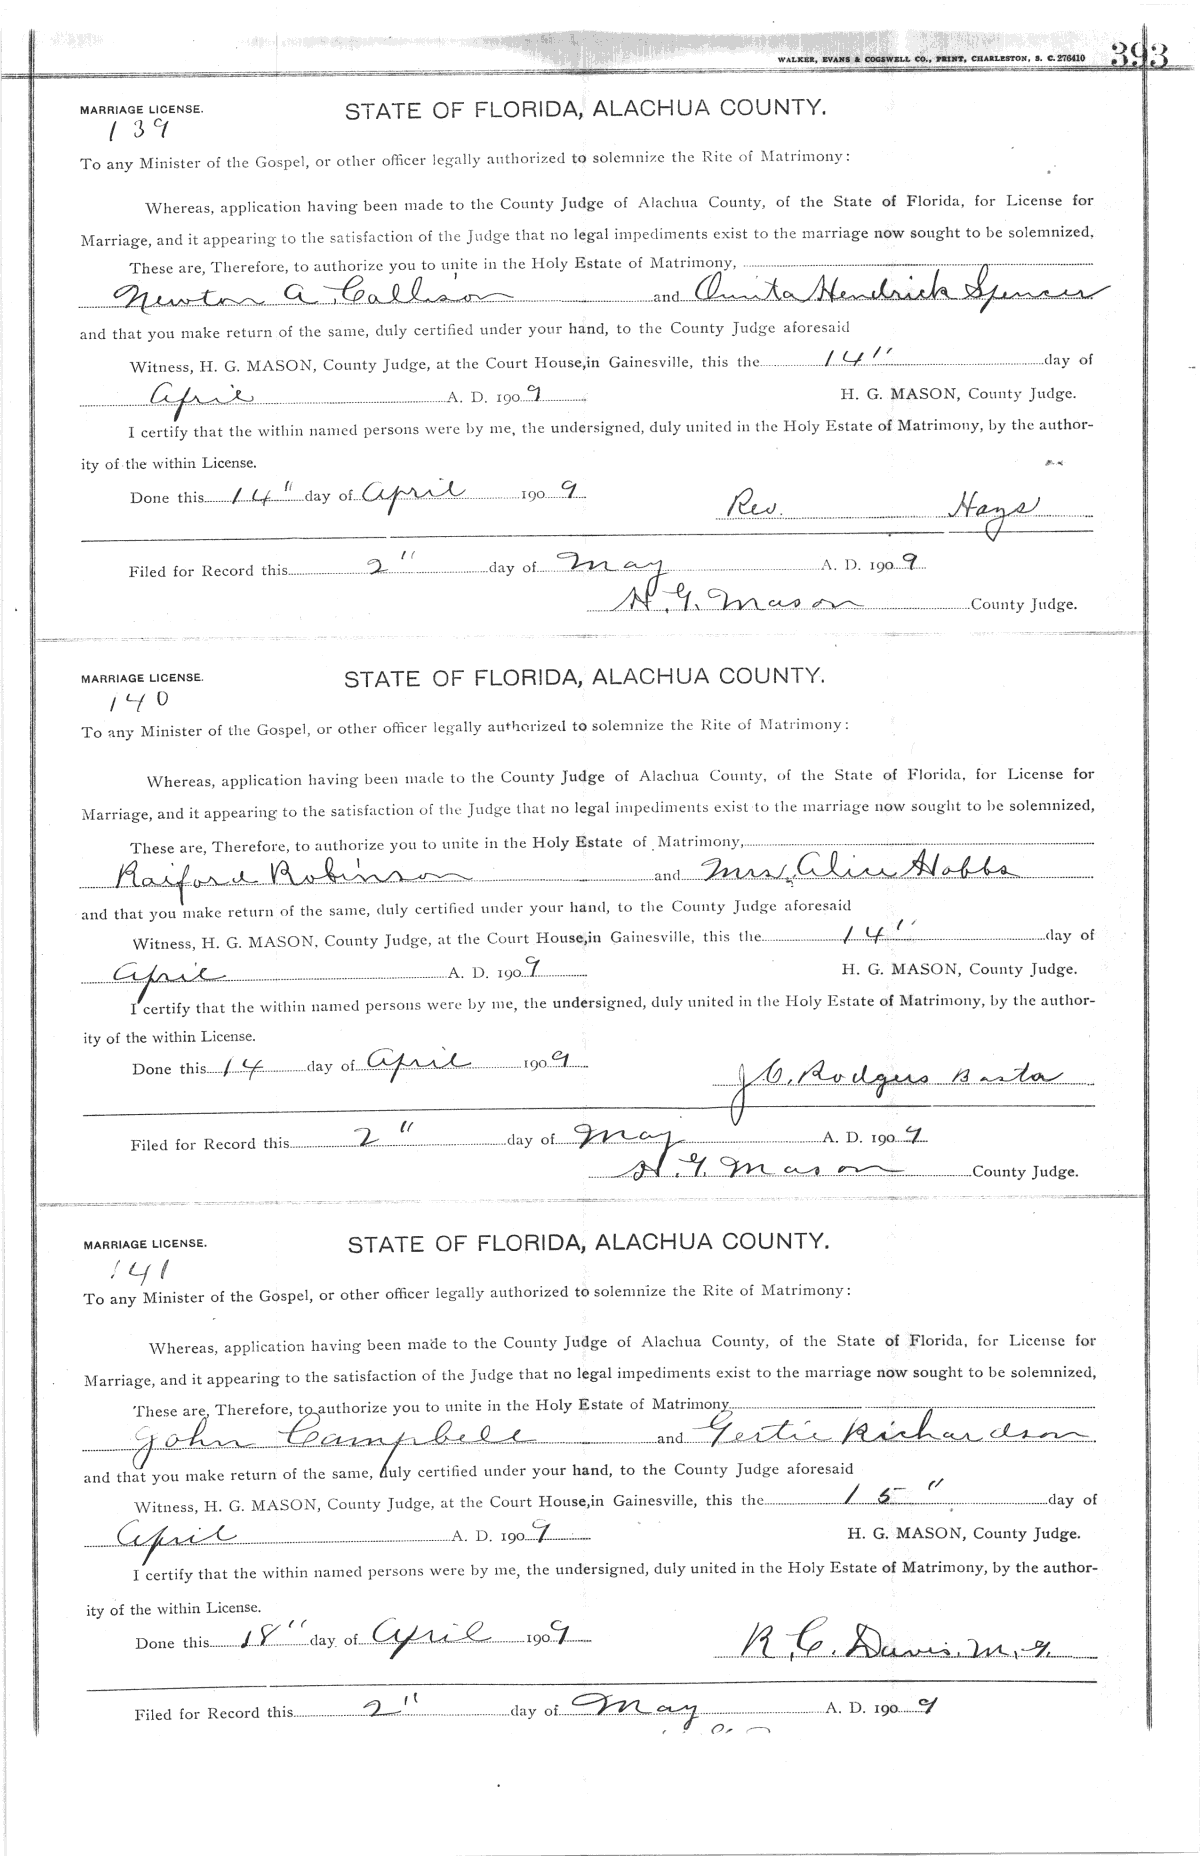 WALKER, EVANS & COGSWELL CO., PRINT, CHARLESTON, S. C. 276410 393
MARRIAGE LICENSE. STATE OF FLORIDA, ALACHUA COUNTY.
139
To any Minister of the Gospel, or other officer legally authorized to solemnize the Rite of Matrimony:
Whereas, application having been made to the County Judge of Alachua County, of the State of Florida, for License for
Marriage, and it appearing to the satisfaction of the Judge that no legal impediments exist to the marriage now sought to be solemnized,
These are, Therefore, to authorize you to unite in the Holy Estate of Matrimony,
Newton A. Callison and Hendrick Spencer
and that you make return of the same, duly certified under your hand, to the County Judge aforesaid
Witness, H. G. MASON, County Judge, at the Court House, in Gainesville, this the 14" day of
April A. D. 1909 H. G. MASON, County Judge.
I certify that the within named persons were by me, the undersigned, duly united in the Holy Estate of Matrimony, by the author-
ity of the within License.
Done this 14" day of April 1909
Rev. Hays
Filed for Record this 2" day of May A. D. 1909
H. G. Mason County Judge.
MARRIAGE LICENSE. STATE OF FLORIDA, ALACHUA COUNTY.
140
To any Minister of the Gospel, or other officer legally authorized to solemnize the Rite of Matrimony:
Whereas, application having been made to the County Judge of Alachua County, of the State of Florida, for License for
Marriage, and it appearing to the satisfaction of the Judge that no legal impediments exist to the marriage now sought to be solemnized,
These are, Therefore, to authorize you to unite in the Holy Estate of Matrimony,
Raiford Robinson and Mrs. Alice Hobbs
and that you make return of the same, duly certified under your hand, to the County Judge aforesaid
Witness, H. G. MASON, County Judge, at the Court House, in Gainesville, this the 14" day of
April A. D. 1909 H. G. MASON, County Judge.
I certify that the within named persons were by me, the undersigned, duly united in the Holy Estate of Matrimony, by the author-
ity of the within License.
Done this 14 day of April 1909
J C. Rodgers Basta
Filed for Record this 2" day of May A. D. 1909
H. G. Mason County Judge.
MARRIAGE LICENSE. STATE OF FLORIDA, ALACHUA COUNTY.
141
To any Minister of the Gospel, or other officer legally authorized to solemnize the Rite of Matrimony:
Whereas, application having been made to the County Judge of Alachua County, of the State of Florida, for License for
Marriage, and it appearing to the satisfaction of the Judge that no legal impediments exist to the marriage now sought to be solemnized,
These are, Therefore, to authorize you to unite in the Holy Estate of Matrimony
John Campbell and Gertie Richardson
and that you make return of the same, duly certified under your hand, to the County Judge aforesaid
Witness, H. G. MASON, County Judge, at the Court House, in Gainesville, this the 15" day of
April A. D. 1909 H. G. MASON, County Judge.
I certify that the within named persons were by me, the undersigned, duly united in the Holy Estate of Matrimony, by the author-
ity of the within License.
Done this 18" day of April 1909
R. C. Davis. M. G.
Filed for Record this 2" day of May A. D. 1909